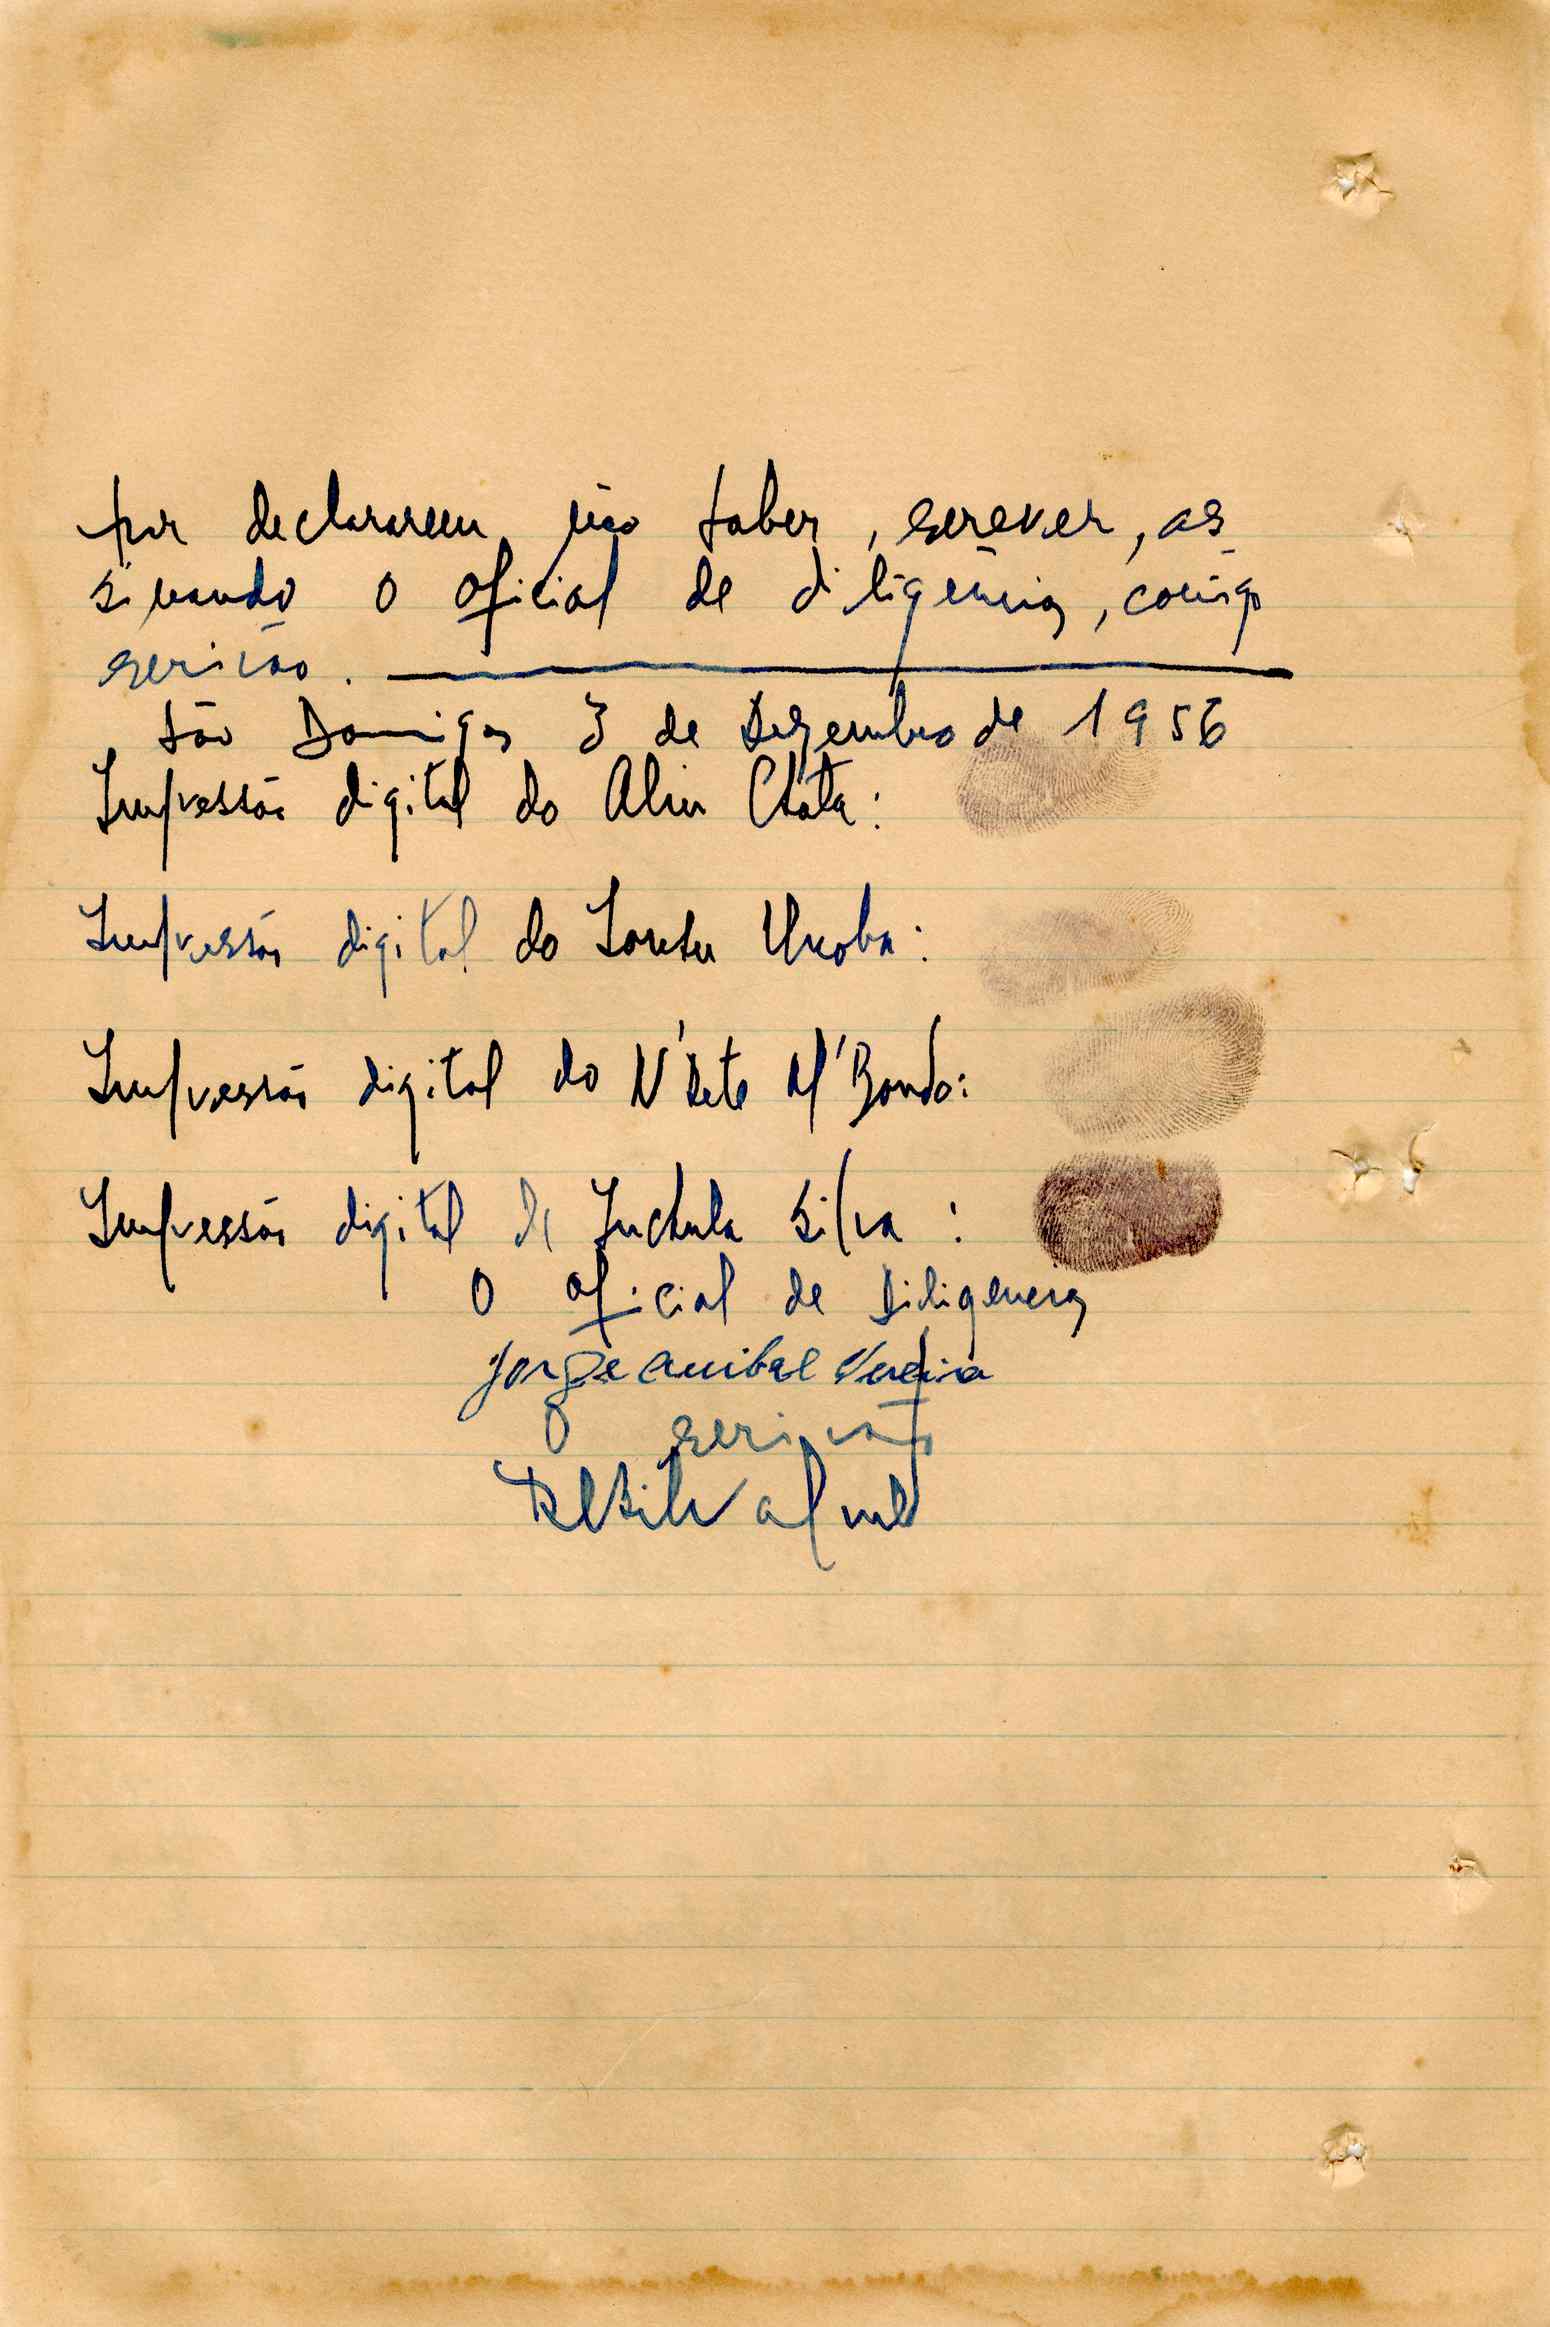 por declararem não saber, escrever, as
sinando o oficial de diligências, comigo
escrivão.
São Domingos 3 de Dezembro de 1956
Impressão digital do Aliu Chata:
Impressão digital do
Impressão digital do N'Dete M'Bondo:
Impressão digital de Silva:
O oficial de Diligencias
Jorge Anibal
O escrivão